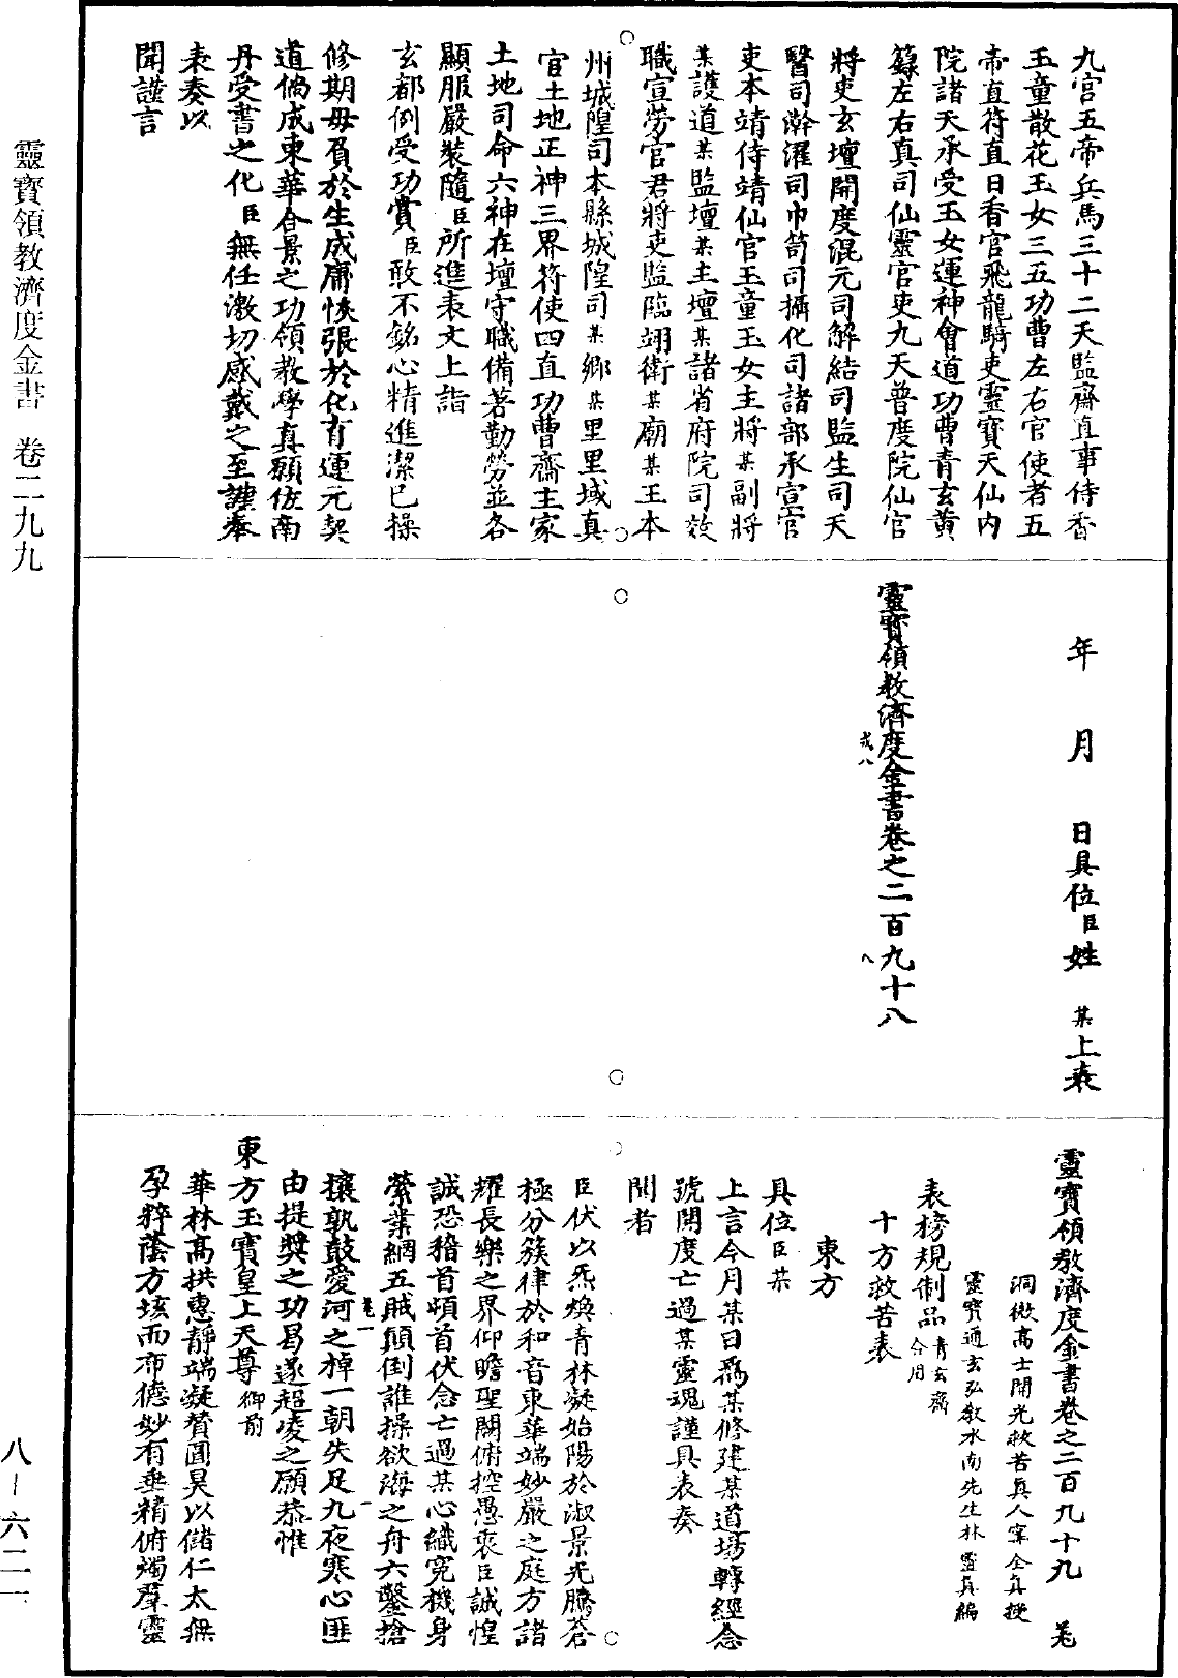 九宮五帝兵馬三十二天監齋直事侍香
玉童散花玉女三五功曹左右官使者五
帝直符直日香官飛龍騎吏靈寶天仙內
院諸天承受玉女運神會道功曹青玄黃
籙左右真司仙靈官吏九天普度院仙官
將吏玄壇開度混元司解結司監生司天
醫司澣濯司巾笥司攝化司諸部承宣官
吏本靖侍靖仙官玉童玉女主將某副將
某護道某監壇某主壇某諸省府院司效
職宣勞官君將吏監臨翊衛某廟某王本
州城隍司本縣城隍司某鄉某里里域真
官土地正神三界符使四直功曹齋主家
土地司命六神在壇守職備著勤勞並各
顯服嚴裝隨臣所進表文上詣
玄都例受功賞臣敢不銘心精進潔己操
修期毋負於生成庸恢張於化育運元契
道僞成東華合景之功領教學真願佐南
丹受書之化臣無任激切感戴之至謹奉
表奏以
聞謹言
年 月 日具位臣姓 某上表
靈寶領教濟度金書卷之二百九十八
戎八 八
靈寶領教濟度金書卷之二百九十九
洞微高士開光救苦真人寧全真授
靈寶通玄弘教水南先生林靈真編
表榜規制品青玄齋
分用
十方救苦表
東方
具位臣某
上言今月某日爲某修建某道場轉經念
號開度亡過某靈魂謹具表奏
聞者
臣伏以炁煥青林凝始陽於淑景光騰蒼
極分簇律於和音東華端妙嚴之庭方諸
耀長樂之界仰瞻聖關俯控愚衷臣誠惶
誠恐稽首頓首伏念亡過某心織冤機身
縈業網五賊顛倒誰操欲海之舟六鑿搶
攘孰鼓愛河之棹一朝失足九夜寒心匪
由提獎之功曷遂超凌之願恭惟
東方玉寶皇上天尊御前
華林高拱惠靜端凝贊圓昊以儲仁太無
孕粹蔭方垓而布德妙有垂精俯燭群靈
靈寶領教濟度金書 卷二九九
八-六二一